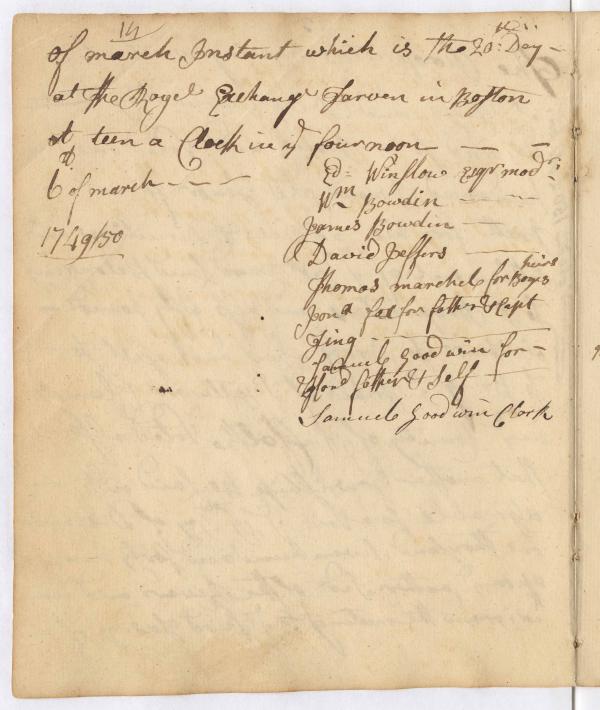 14
of march Instant which is the 20th: Day
at the Royel Exchange Tarven in Boston
at teen a Clock in ye fournoon
6 of march
1749/50
Ed: Winslow Esqr modr:
Wm Bowdin
James Bowdin
David Jeffers
Thomas marchel for Boyes heirs
Jona fox for father & Capt
Ting
Samuel Goodwin for
Hond father & Self
Samuel Goodwin Clark